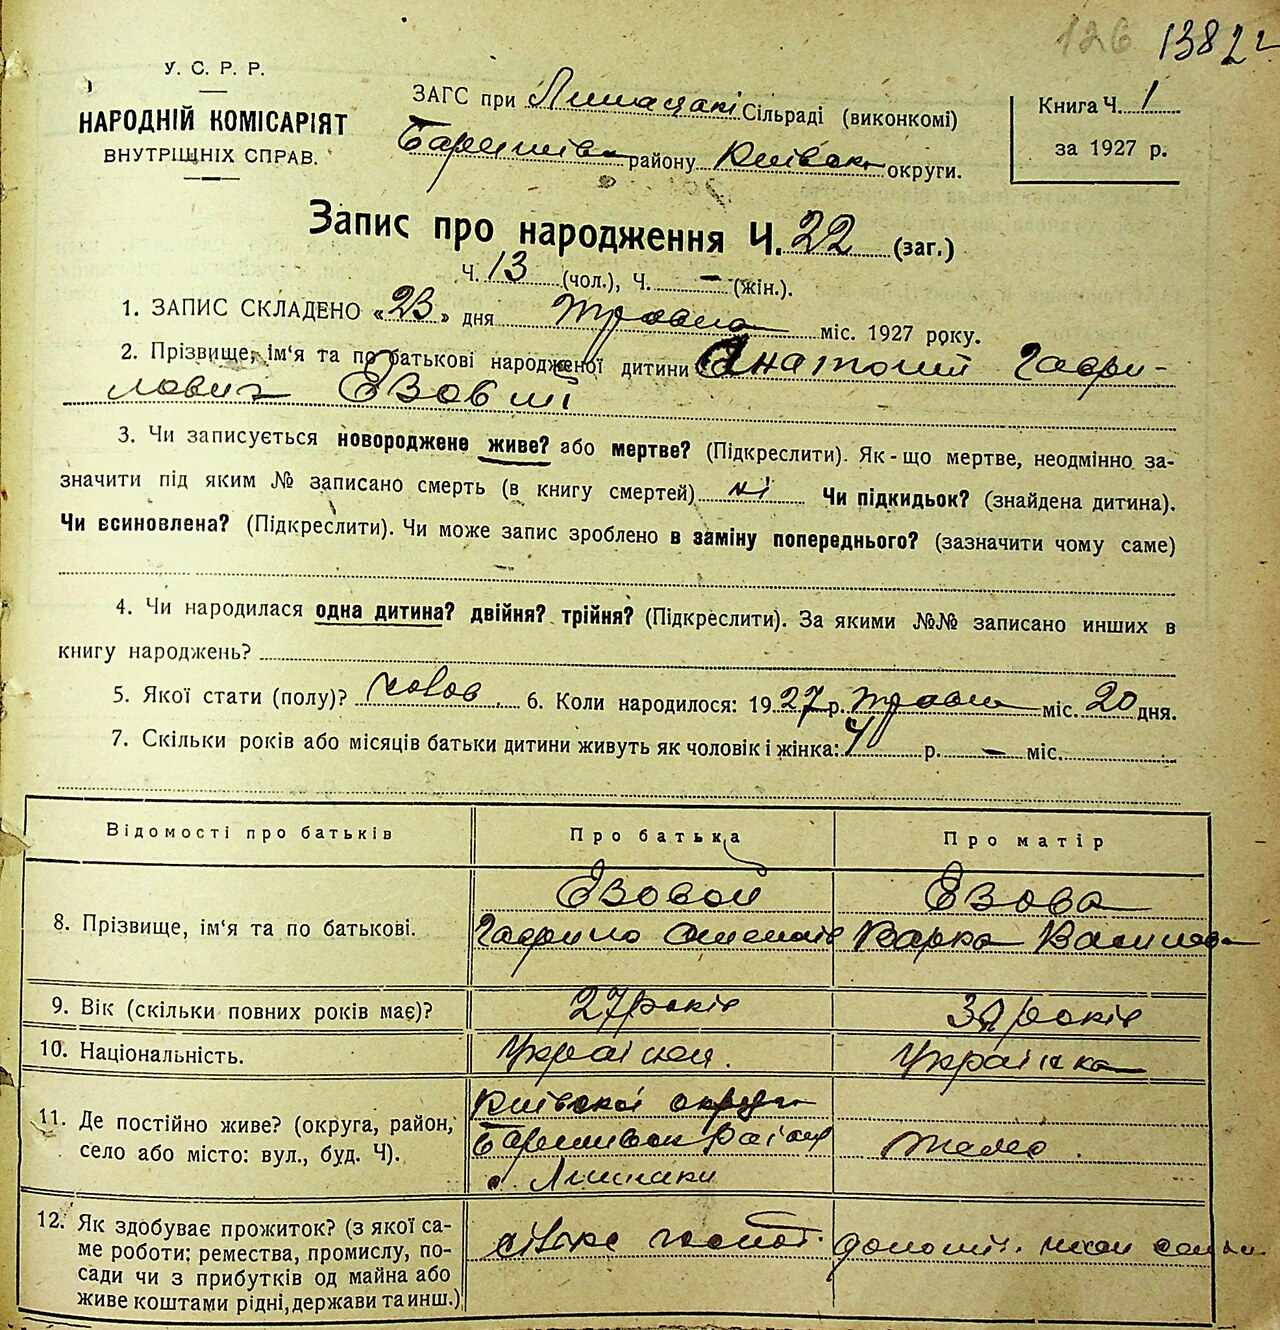 126 1382
У. С. Р. Р.
НАРОДНІЙ КОМІСАРІЯТ
ВНУТРІШНІХ СПРАВ.
ЗАГС при Сільраді (виконкомі)
району округи.
Книга Ч. 1
за 1927 р.
Запис про народження Ч. 22 (заг.)
Ч. 13 (чол.), Ч. — (жін.).
1. ЗАПИС СКЛАДЕНО «23» дня травня міс. 1927 року.
2. Прізвище, ім'я та по батькові народженої дитини Анатолий Гаври-
лович Єзовий
3. Чи записується новороджене живе? або мертве? (Підкреслити). Як-що мертве, неодмінно за-
значити під яким № записано смерть (в книгу смертей) ні Чи підкидьок? (знайдена дитина).
Чи всиновлена? (Підкреслити). Чи може запис зроблено в заміну попереднього? (зазначити чому саме)
—
4. Чи народилася одна дитина? двійня? трійня? (Підкреслити). За якими №№ записано инших в
книгу народжень?
5. Якої стати (полу)? чолов. 6. Коли народилося: 1927 р. травня міс. 20 дня.
7. Скільки років або місяців батьки дитини живуть як чоловік і жінка: 4 р. — міс.
Відомості про батьків Про батька Про матір
8. Прізвище, ім'я та по батькові.
Єзовой Єзова
Гаврило Варка
9. Вік (скільки повних років має)? 27 років років
10. Національність. Українка
11. Де постійно живе? (округа, район,
село або місто: вул., буд. Ч).
Київскої округи
район
с.
тамо.
12. Як здобуває прожиток? (з якої са-
ме роботи: ремества, промислу, по-
сади чи з прибутків од майна або
живе коштами рідні, держави та инш.)